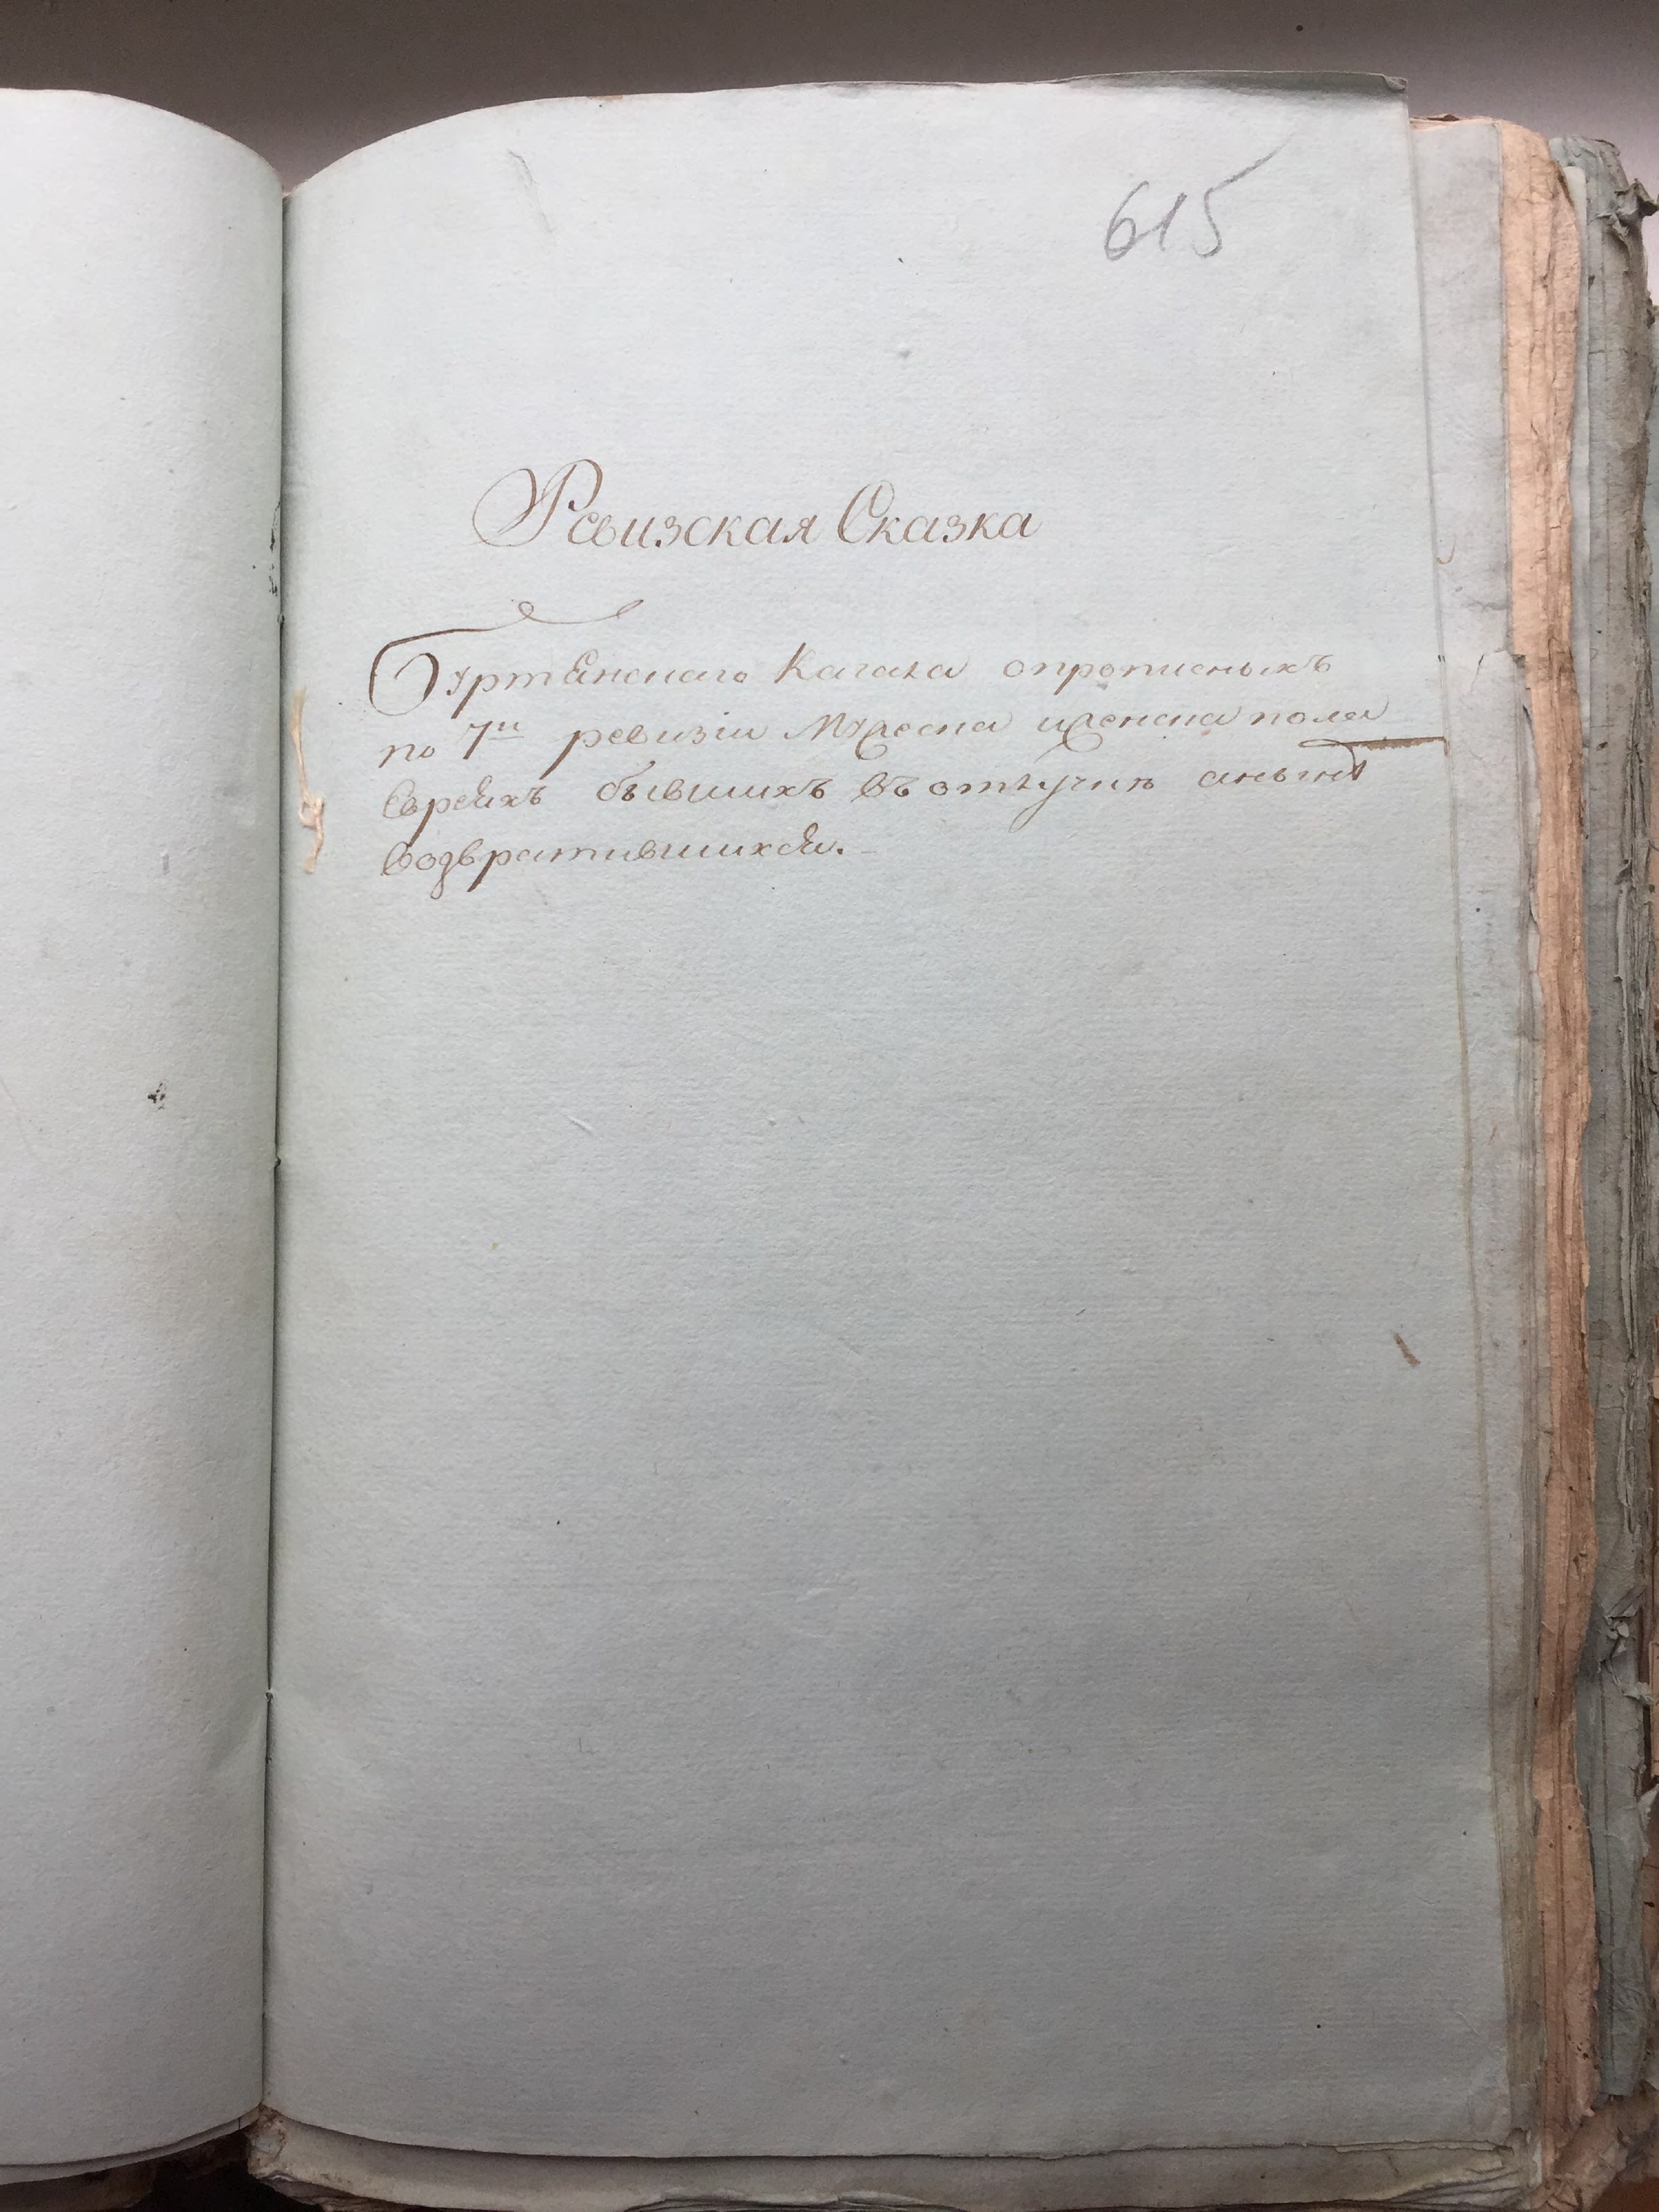 615
Ревизская Сказка
Кагала о прописныхъ
по 7й ревизіи Мужеска и женска пола
Евреяхъ бывшихъ въ отлучкѣ а нынѣ
возвратившихся.